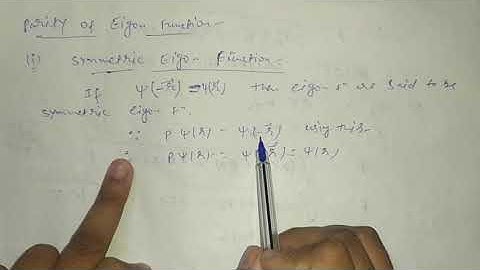 Parity of Eigen Function -
(i) Symmetric Eigen Function -
If ψ(-r⃗) = ψ(r⃗) then eigen fn are said to be
symmetric eigen fn.
∵ P ψ(r) = ψ(-r⃗) using this
∴ P ψ(r) = ψ(-r⃗) = ψ(r)